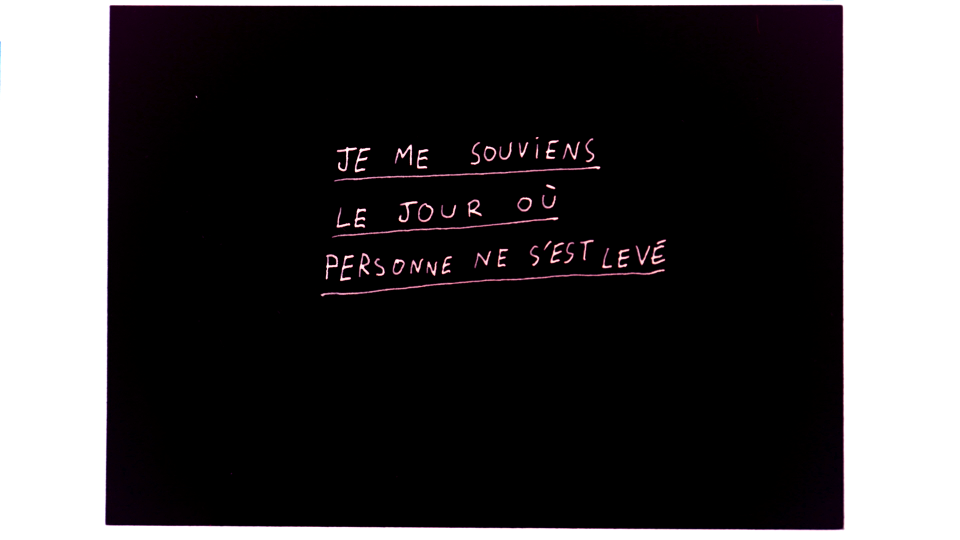 JE ME SOUViENS
LE JOUR OÙ
PERSONNE NE S'EST LEVÉ